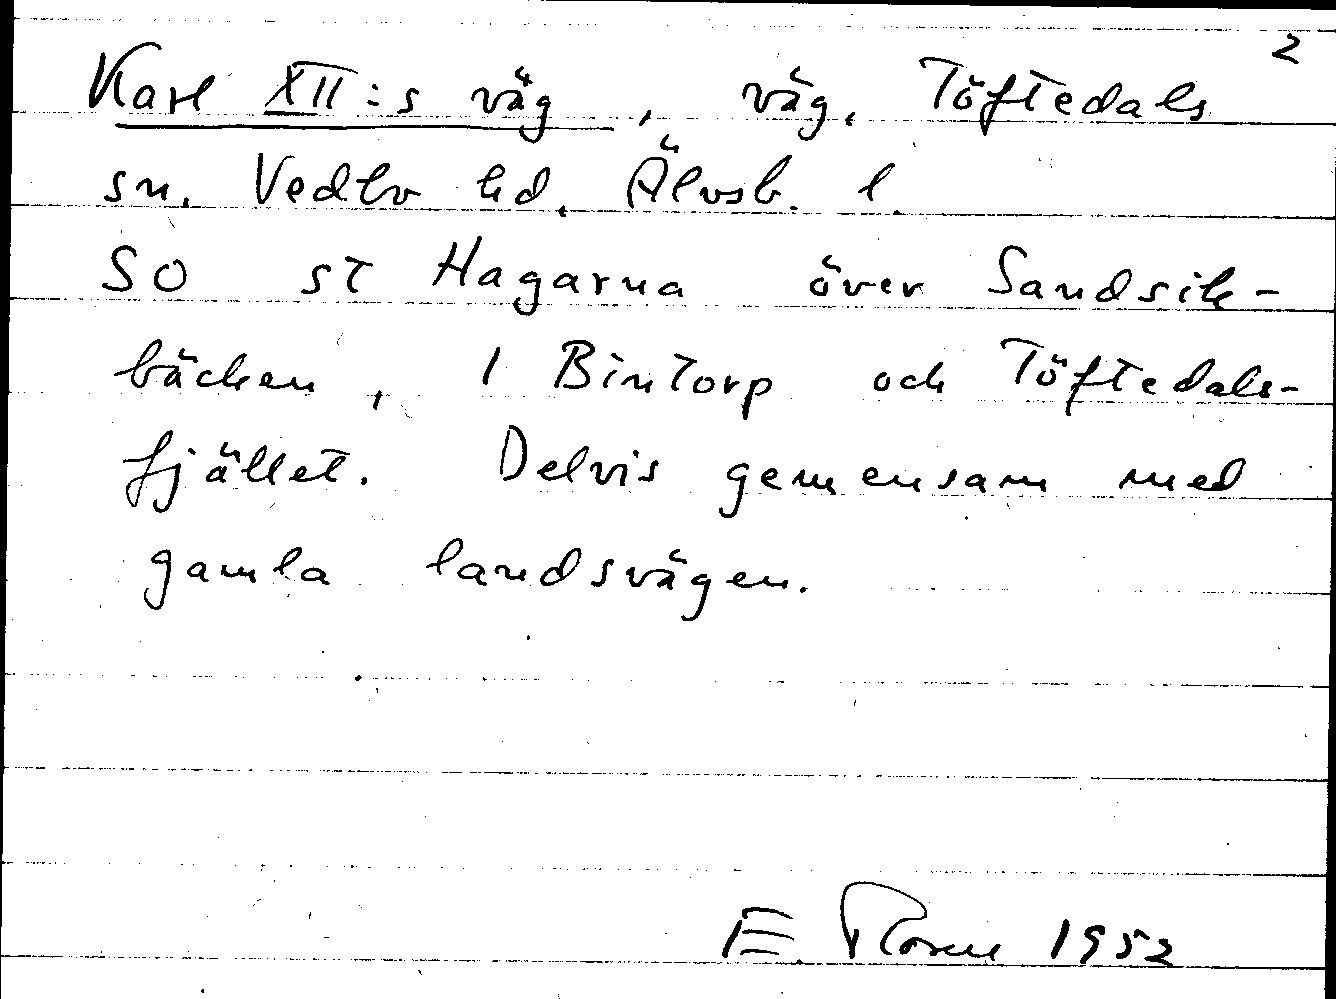 2
Karl XII:s väg, väg, Töftedals
sn. Vedbo hd. Älvsb. l.
SO st Hagarna över Sandsik-
bäcken, 1 Bintorp och Töftedals-
fjället. Delvis gemensam med
gamla landsvägen.
E. 1952